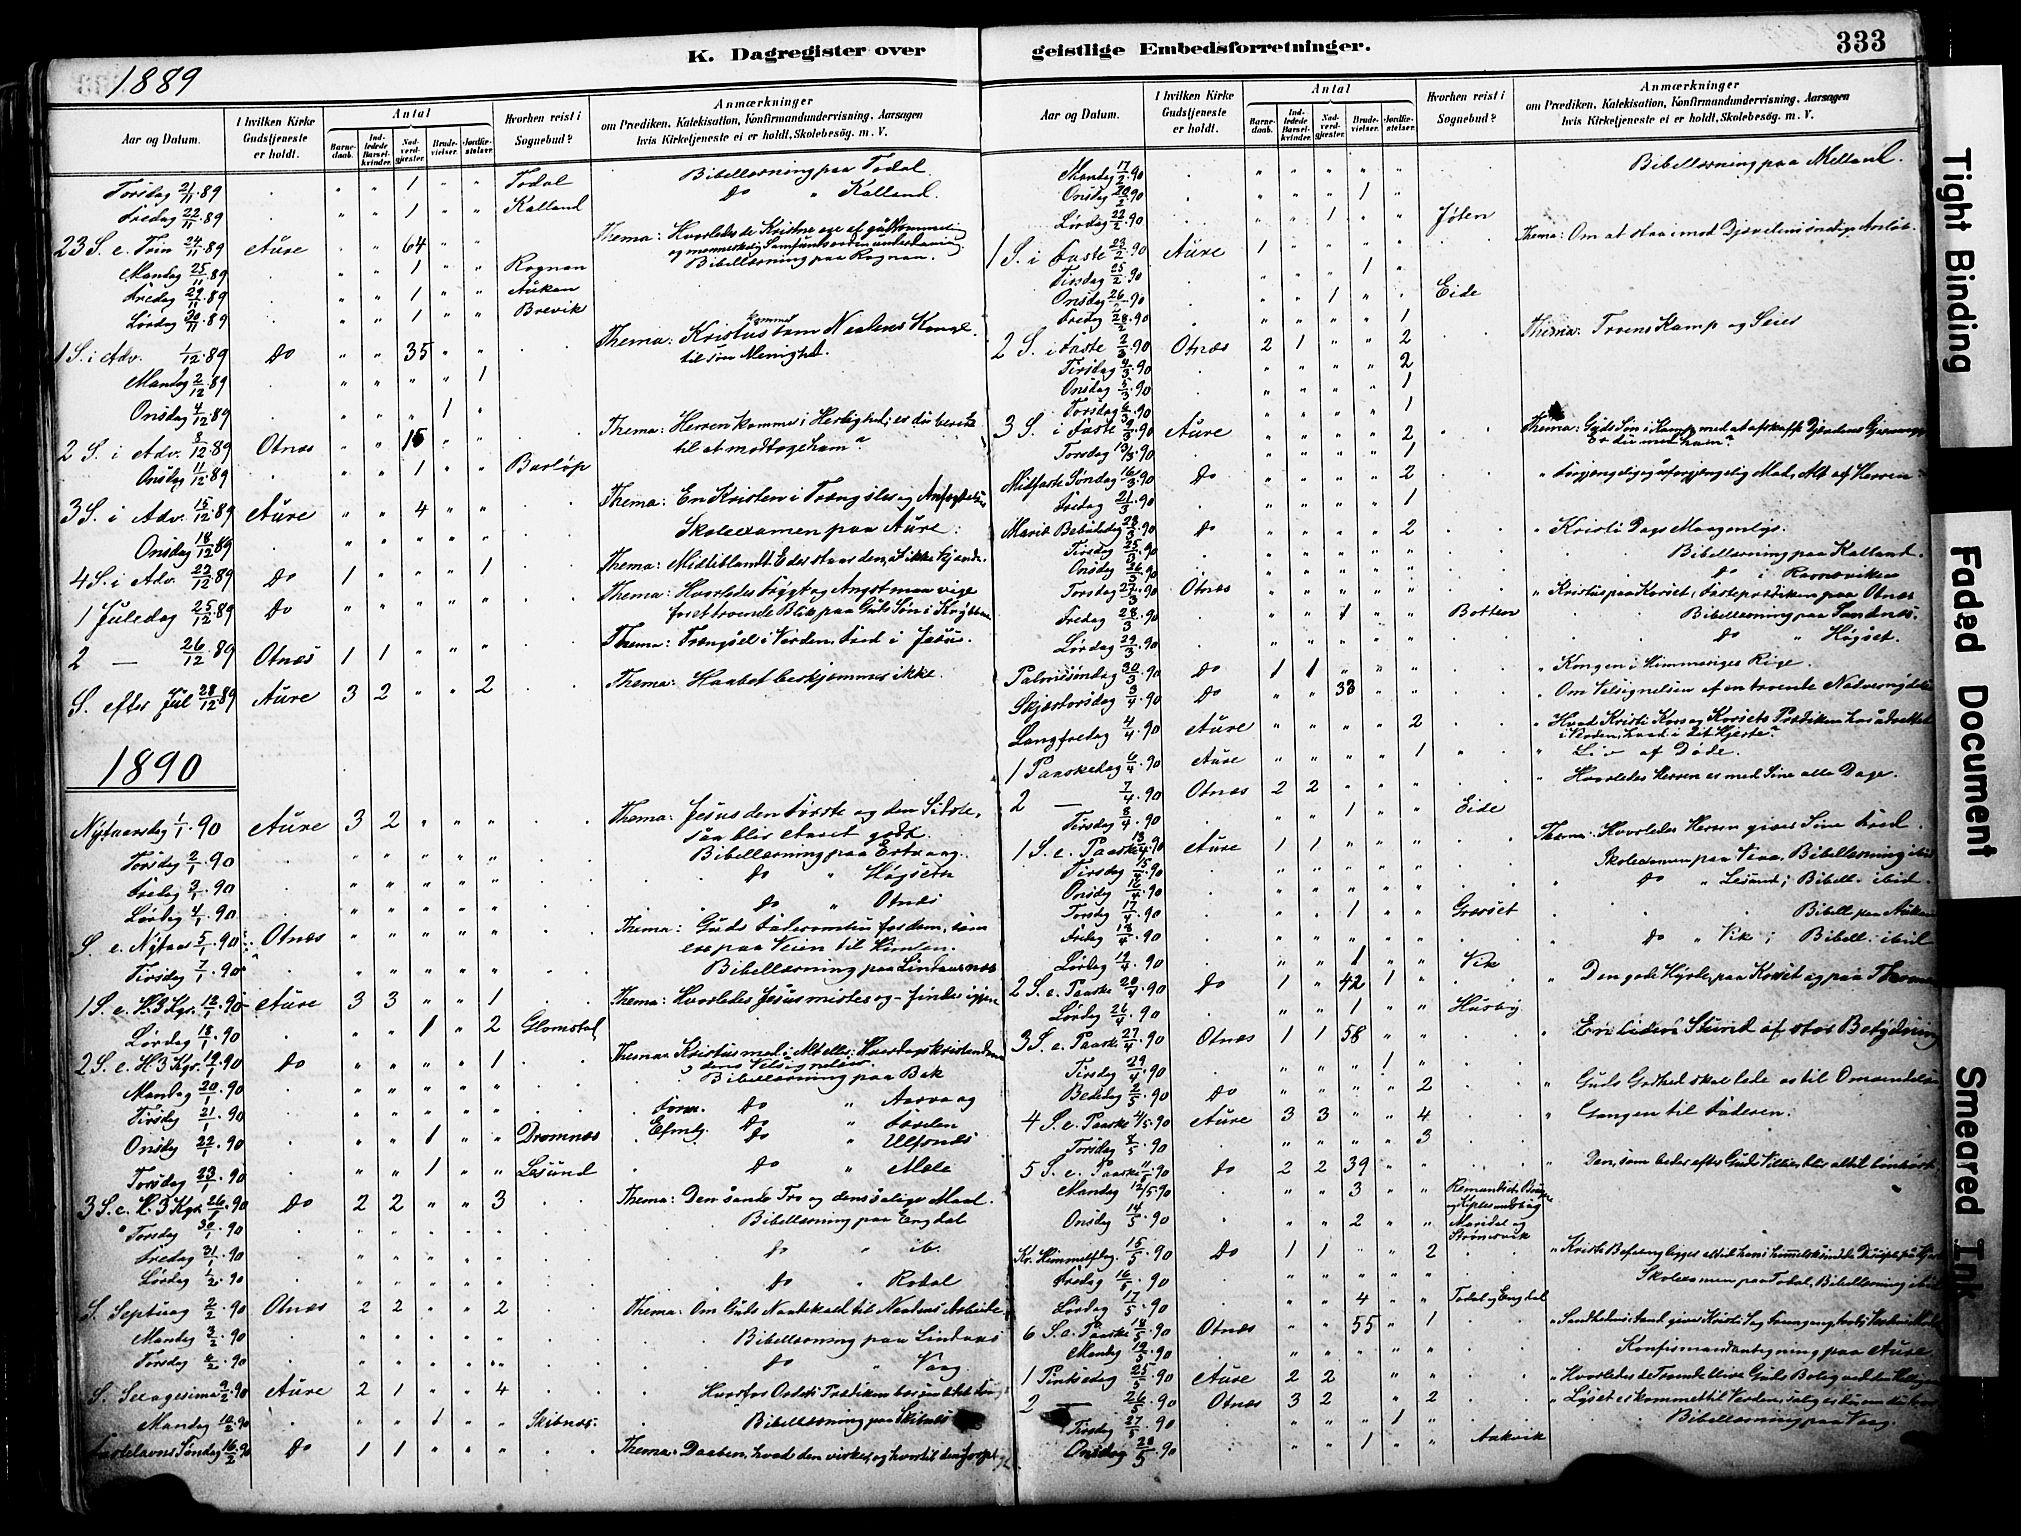 K. Dagregister over geistlige Embedsforretninger.
333
1889
Aar og Datum.
I hvilken Kirke Gudstjeneste er holdt.
Antal
Barnedaab.
Indledede Barselkvinder.
Nadverdgjæster.
Brudevielser.
Jordfæstelser.
Hvorhen reist i Sognebud?
Anmærkninger
om Prædiken, Katekisation, Konfirmandundervisning, Aarsagen
hvis Kirketjeneste ei er holdt, Skolebesøg. m. V.
Torsdag 21/11 89 . " " 1 " " Todal Bibellæsning paa Todal.
Fredag 22/11 89 . " " 1 " " Kalland do " Kalland.
23 S. e. Trin 24/11 89 Aure " " 64 " " Thema: Hvorledes de Kristne
Bibellæsning paa Rognan.
Mandag 25/11 89 " " 1 " " Rognan
Fredag 29/11 89 " " 1 " " Auken
Lørdag 30/11 89 " " 1 " " Brevik
1 S. i Adv. 1/12 89 do " " 35 " " Thema: Kristus kommer som Naadens Konge
til sin Menighed.
Mandag 2/12 89 " " " " 1
Onsdag 4/12 89 " " " 1 "
2 S. i Adv. 8/12 89 Otnæs " " 15 " " Thema: Herren kommer i Herlighed; er du beredt
til at modtage ham?
Onsdag 11/12 89 " " 1 " " Barløp
3 S. i Adv. 15/12 89 Aure " " 4 " " Thema: En Kristen i Trængsler og Anfægtelser
Onsdag 18/12 89 " " " " " Skoleexamen paa Aure
4 S. i Adv. 22/12 89 do 1 " " " 1 Thema: Midtiblandt Eder staar den, I ikke kjende.
1 Juledag 25/12 89 do " " " " " Thema: Hvorledes Frygt og Angst maa vige
for et troende Blik paa Guds Søn i Krybben
2 — 26/12 89 Otnæs 1 1 " " " Thema: Trængsel i Verden, Fred i Jesus.
S. efter Jul 28/12 89 Aure 3 2 " " 2 Thema: Haabet beskjæmmer ikke.
1890
Nytaarsdag 1/1 90 Aure 3 2 " " " Thema: Jesus den Første og den Sidste,
saa blir Aaret godt.
Torsdag 2/1 90 " " " " " Bibellæsning paa Ertvaag.
Fredag 3/1 90 " " " " " do " Høgseth
Lørdag 4/1 90 " " " " " do " Otnæs
S. e. Nytaar 5/1 90 Otnæs " " " " " Thema: Guds Faderomhu for dem, som
er paa Veien til Himlen.
Tirsdag 7/1 90 " " " " " Bibellæsning paa Lindaasnæs
1 S. e. H. 3 Kgr. 12/1 90 Aure 3 3 " " 1 Thema: Hvorledes Jesus mistes og findes igjen
Lørdag 18/1 90 " " 1 " 2 Glomstal
2 S. e. H. 3 Kgr. 19/1 90 do " " " " 1 Thema: Kristus med i Alt eller: Hverdagskristendom
dens Velsignelser.
Mandag 20/1 90 " " " " " Bibellæsning paa Bak
Tirsdag 21/1 90 " " " " " Form. do " Aasvaag
Eftmdg. do " Førden
Onsdag 22/1 90 " " 1 " " Dromnæs do " Ulfsnæs
Torsdag 23/1 90 " " 1 " " Lesund do " Mele
3 S. e. H. 3 Kgr. 26/1 90 do 2 2 " " 3 Thema: Den sande Tro og dens salige Maal.
Torsdag 30/1 90 Bibellæsning paa Engdal
Fredag 31/1 90 " " " " " do " ib.
Lørdag 1/2 90 " " " " " do " Rodal
S. Septuag 2/2 90 Otnæs 2 2 " " 2 Thema: Om Guds Naadekald til Naadens Arbeide
Mandag 3/2 90 " " " " " Bibellæsning paa Lindaas
Torsdag 6/2 90 " " " " " do " Vaag.
S. Sexagesima 9/2 90 Aure 2 1 " " 4 Hvorfor Ordets Prædiken bær
Mandag 10/2 90 " " 1 " " Skibnæs Bibellæsning paa Skibnæs
Fastelavns Søndag 16/2 90 do 1 1 " " " Thema: Daaben, hvad den virker, og hvortil den forpligter
Aar og Datum.
I hvilken Kirke Gudstjeneste er holdt.
Antal
Barnedaab.
Indledede Barselkvinder.
Nadverdgjæster.
Brudevielser.
Jordfæstelser.
Hvorhen reist i Sognebud?
Anmærkninger
om Prædiken, Katekisation, Konfirmandundervisning, Aarsagen
hvis Kirketjeneste ei er holdt, Skolebesøg. m. V.
Mandag 17/2 90 " " " " " Bibellæsning paa Melland.
Onsdag 20/2 90 " " " 1 "
Lørdag 22/2 90 " " 1 " " Jøten
1 S. i Faste 23/2 90 Aure 1 " " " " Thema: Om at staa imod Djævelens snedige Anløb.
Tirsdag 25/2 90 " " " 1 "
Onsdag 26/2 90 " " 1 " " Eide
Fredag 28/2 90 " " " " 1
2 S. i Faste 2/3 90 Otnæs 2 1 " " 2 Thema: Troens Kamp og Seier
Tirsdag 4/3 90 " " " " 2
Onsdag 5/3 90 " " " " 1
Torsdag 6/3 90 " " " " 1
3 S. i Faste 9/3 90 Aure " " " " 2 Thema: Guds Søn i Kamp med at afskaffe Djævelens Gjerninger
Er du med ham?
Torsdag 13/3 90 " " " " 1
Midfaste Søndag 16/3 90 do " " " " 2 " Forgjængelig og uforgjængelig Mad, Alt af Herren
Fredag 21/3 90 " " " " 1
Mariæ Bebudelsdag 23/3 90 do " " " " 2 " Kristi Dags Morgenlys.
Tirsdag 25/3 90 " " " " " Bibellæsning paa Kalland.
Onsdag 26/3 90 " " " " " do i Ramsviken
Torsdag 27/3 90 Otnæs " " " " " " Kristus paa Korset, Fasteprædiken paa Otnæs
Fredag 28/3 90 " " 1 " " Botten Bibellæsning paa Sandnæs.
Lørdag 29/3 90 " " " " " do " Høgset.
Palmesøndag 30/3 90 do 1 1 " " " " Kongen i Himmeriges Rige.
Skjærtorsdag 3/4 90 do " " 33 " " " Om Velsignelsen af en troende Nadvernydelse
Langfredag 4/4 90 Aure " " " " 2 " Hvad Kristi Kors og Korsets Prædiken har udrettet
i Verden, hvad i dit Hjerte?
1 Paaskedag 6/4 90 Aure " " " " 1 " Liv af Døde.
2 — 7/4 90 Otnæs 2 2 " " " " Hvorledes Herren er med Sine alle Dage.
Tirsdag 8/4 90 " " 1 " " Eide
1 S. e. Paaske 13/4 90 Aure 1 1 " " " Thema: Hvorledes Herren giver Sine Fred.
Tirsdag 15/4 90 " " " " " Skoleexamen paa Viaa, Bibellæsning ibid
Onsdag 16/4 90 " " " " " do " Lesund; Bibell. ibid.
Torsdag 17/4 90 " " 1 " " Græsset Bibell paa Auken
Fredag 18/4 90 " " " " " do " Vik; Bibell. ibid
Lørdag 19/4 90 " " 1 " " Vik
2 S. e. Paaske 20/4 90 do 1 " 42 1 " " Den gode Hyrde, paa Korset og paa Thronen
Lørdag 26/4 90 " " 1 " " Husby
3 S. e. Paaske 27/4 90 Otnæs 1 1 58 " " " En liden Stund af stor Betydning
Tirsdag 29/4 90 " " " 1 "
Bededag 2/5 90 do " " " " 2 " Guds Godhed skal lede os til Omvendelse
4 S. e. Paaske 4/5 90 Aure 3 3 " " 4 " Gangen til Faderen.
Torsdag 8/5 90 " " " " 3
5 S. e. Paaske 11/5 90 do 2 2 39 " " " Den, som beder efter Guds Villie, blir altid bønhørt.
Mandag 12/5 90 " " 3 " "
Onsdag 14/5 90 " " 2 " " Mærdal og Strømsvik
Kr. Himmelfdag. 15/5 90 do 1 1 " " 2
Fredag 16/5 90 " " " " " Skoleexamen paa Todal, Bibellæsning ibid
Lørdag 17/5 90 " " 4 " " Todal og Engdal
6 S. e. Paaske 18/5 90 Otnæs " " 55 " 1 " Sandhedens Aand giver Kristi Sag Fremgang
Mandag 19/5 90 " " " " " Konfirmandantegning paa Aure
1 Pintsedag 25/5 90 Aure 2 2 " " " " Hvorledes de Troende blive Guds Bolig ved den Hellig
2 — 26/5 90 Otnæs 3 2 " " 2 " Lyset er kommet til Verden,
Tirsdag 27/5 90 " " " 1 " Bibellæsning paa Vaag.
Onsdag 28/5 90 " " 1 " " Aakvik
Tight Binding
Faded Document
Smeared Ink